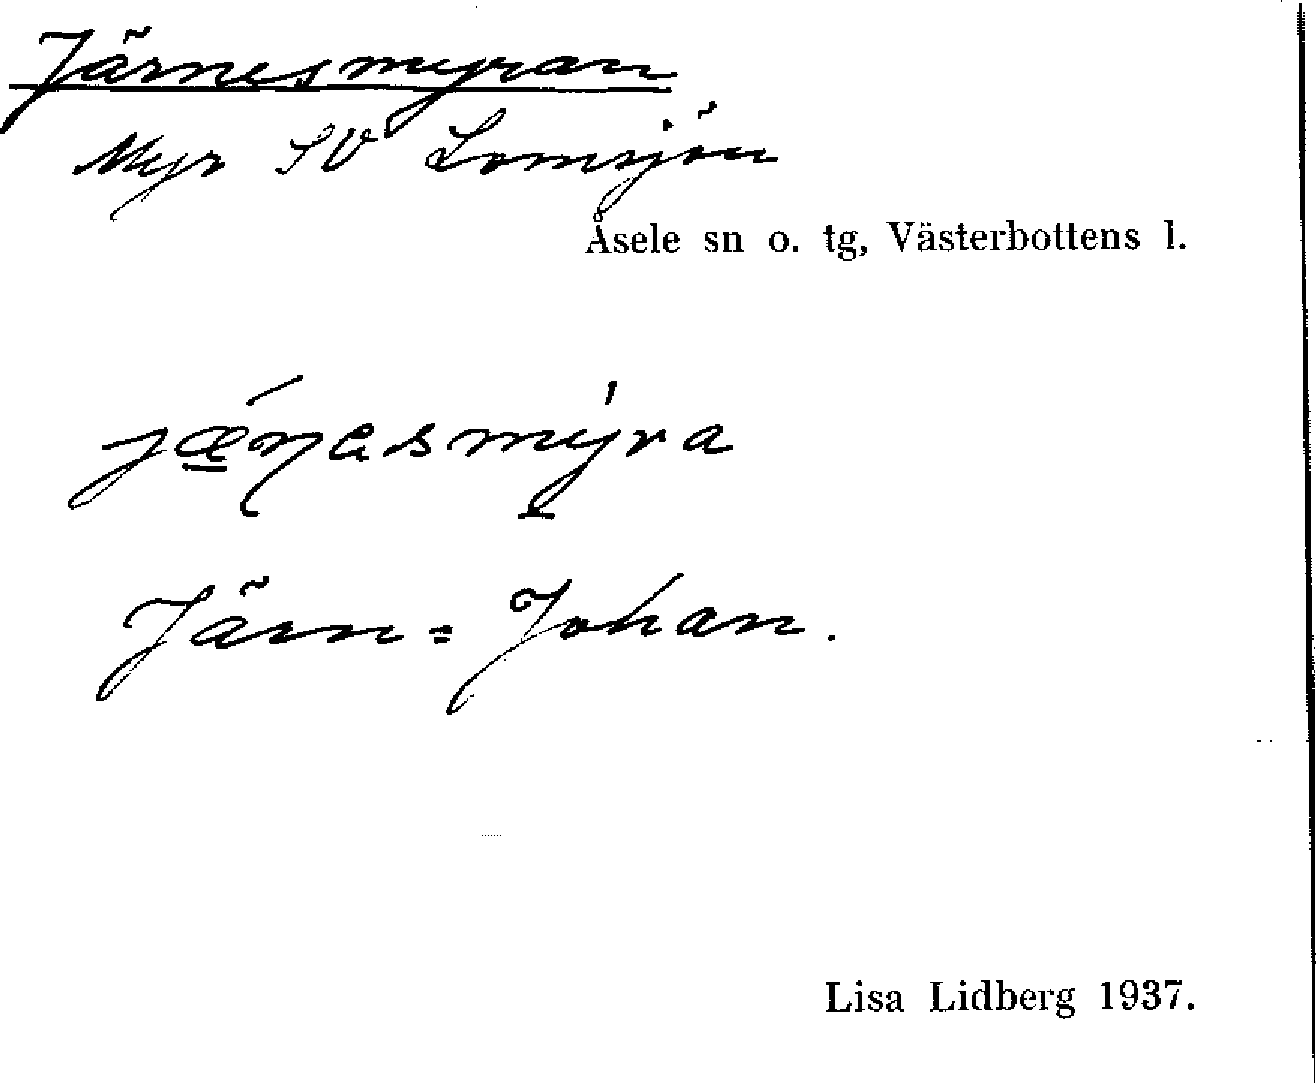 Järnesmyran
Myr SV Lomsjön
Åsele sn o. tg, Västerbottens l.
Järn-Johan.
Lisa Lidberg 1937.